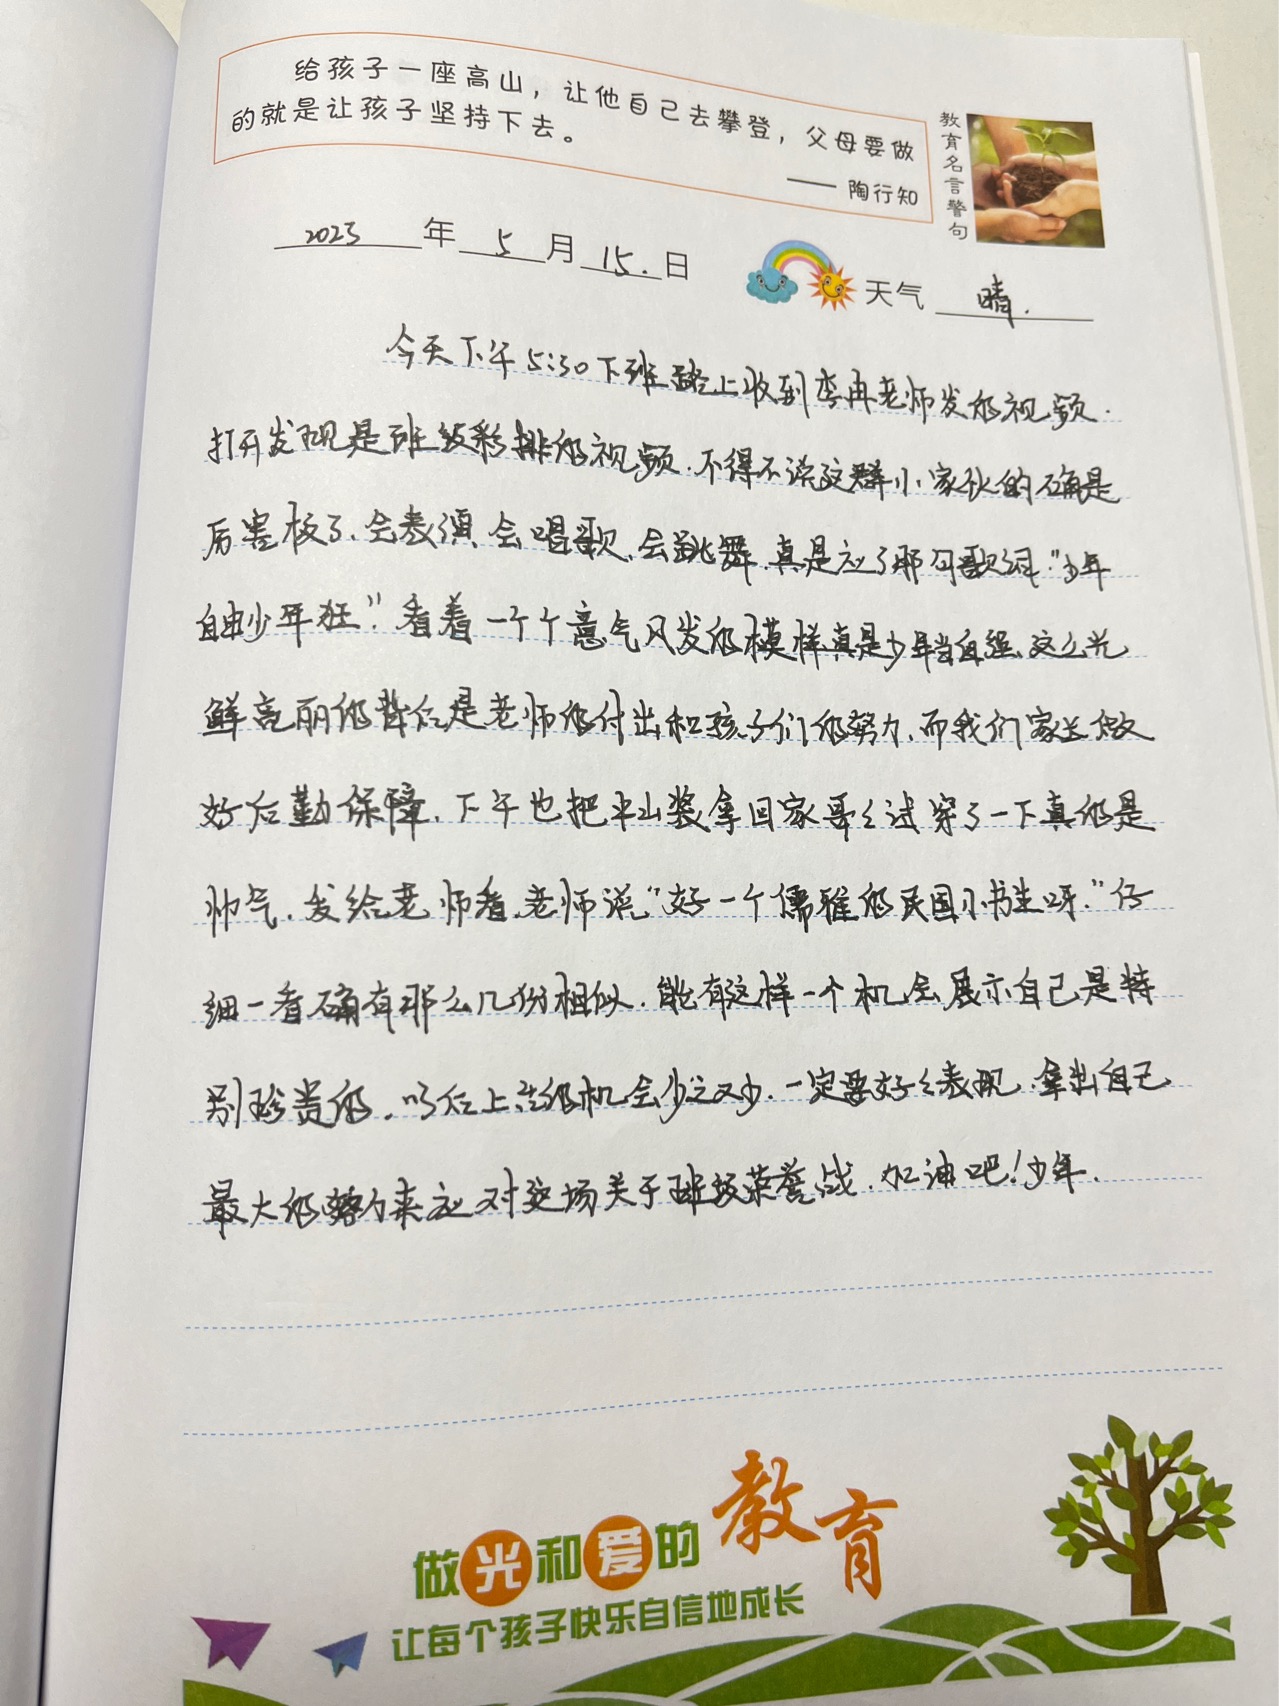 给孩子一座高山，让他自己去攀登，父母要做
的就是让孩子坚持下去。
—— 陶行知
教育名言警句
2023年5月15.日
天气 晴.
今天下午5:30下班路上收到李冉老师发的视频.
打开发现是班级彩排的视频.不得不说这群小家伙的确是
厉害极了.会表演.会唱歌.会跳舞.真是应了那句歌词:"少年
自由少年狂".看着一个个意气风发的模样真是少年当自强.这么光
鲜亮丽的背后是老师的付出和孩子们的努力.而我们家长做
好后勤保障.下午也把中山装拿回家哥々试穿了一下真的是
帅气.发给老师看.老师说"好一个儒雅的民国小书生呀."仔
细一看确有那么几份相似.能有这样一个机会展示自己是特
别珍贵的.以后上台的机会少之又少.一定要好々表现.拿出自己
最大的努力来应对这场关于班级荣誉战.加油吧!少年.
做光和爱的教育
让每个孩子快乐自信地成长